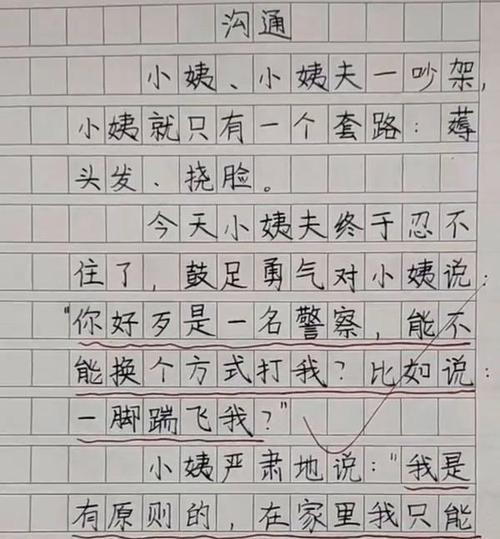 沟通
小姨、小姨夫一吵架,
小姨就只有一个套路：薅
头发、挠脸。
今天小姨夫终于忍不
住了，鼓足勇气对小姨说：
"你好歹是一名警察，能不
能换个方式打我？比如说：
一脚踹飞我？"
小姨严肃地说："我是
有原则的，在家里我只能